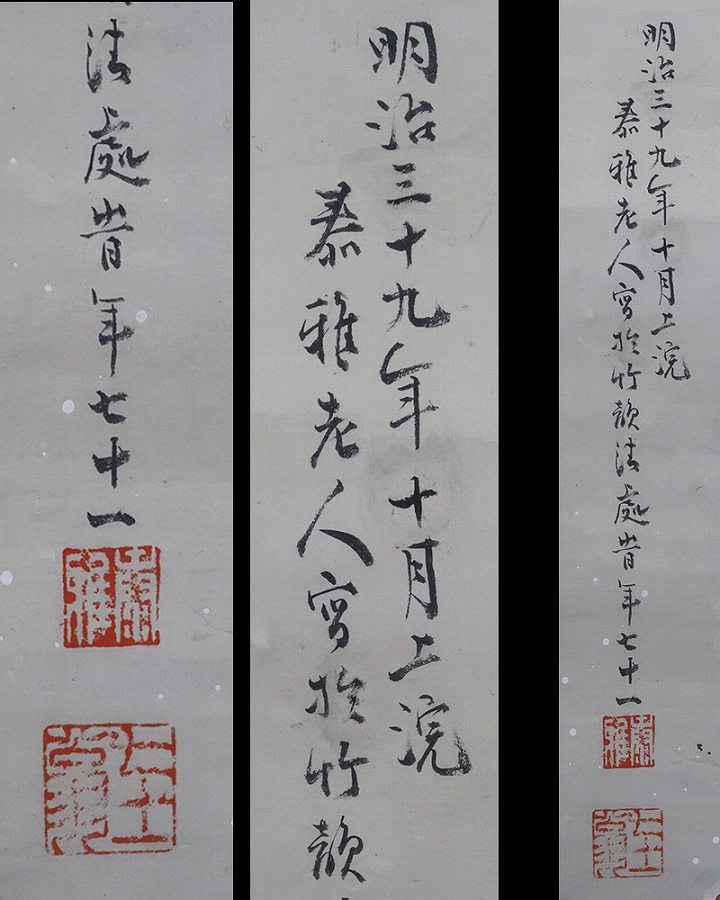 清處峕年七十一
泰雅
明治三十九年十月上浣
泰雅老人寫於竹韻
明治三十九年十月上浣
泰雅老人寫於竹韻清處峕年七十一
泰雅